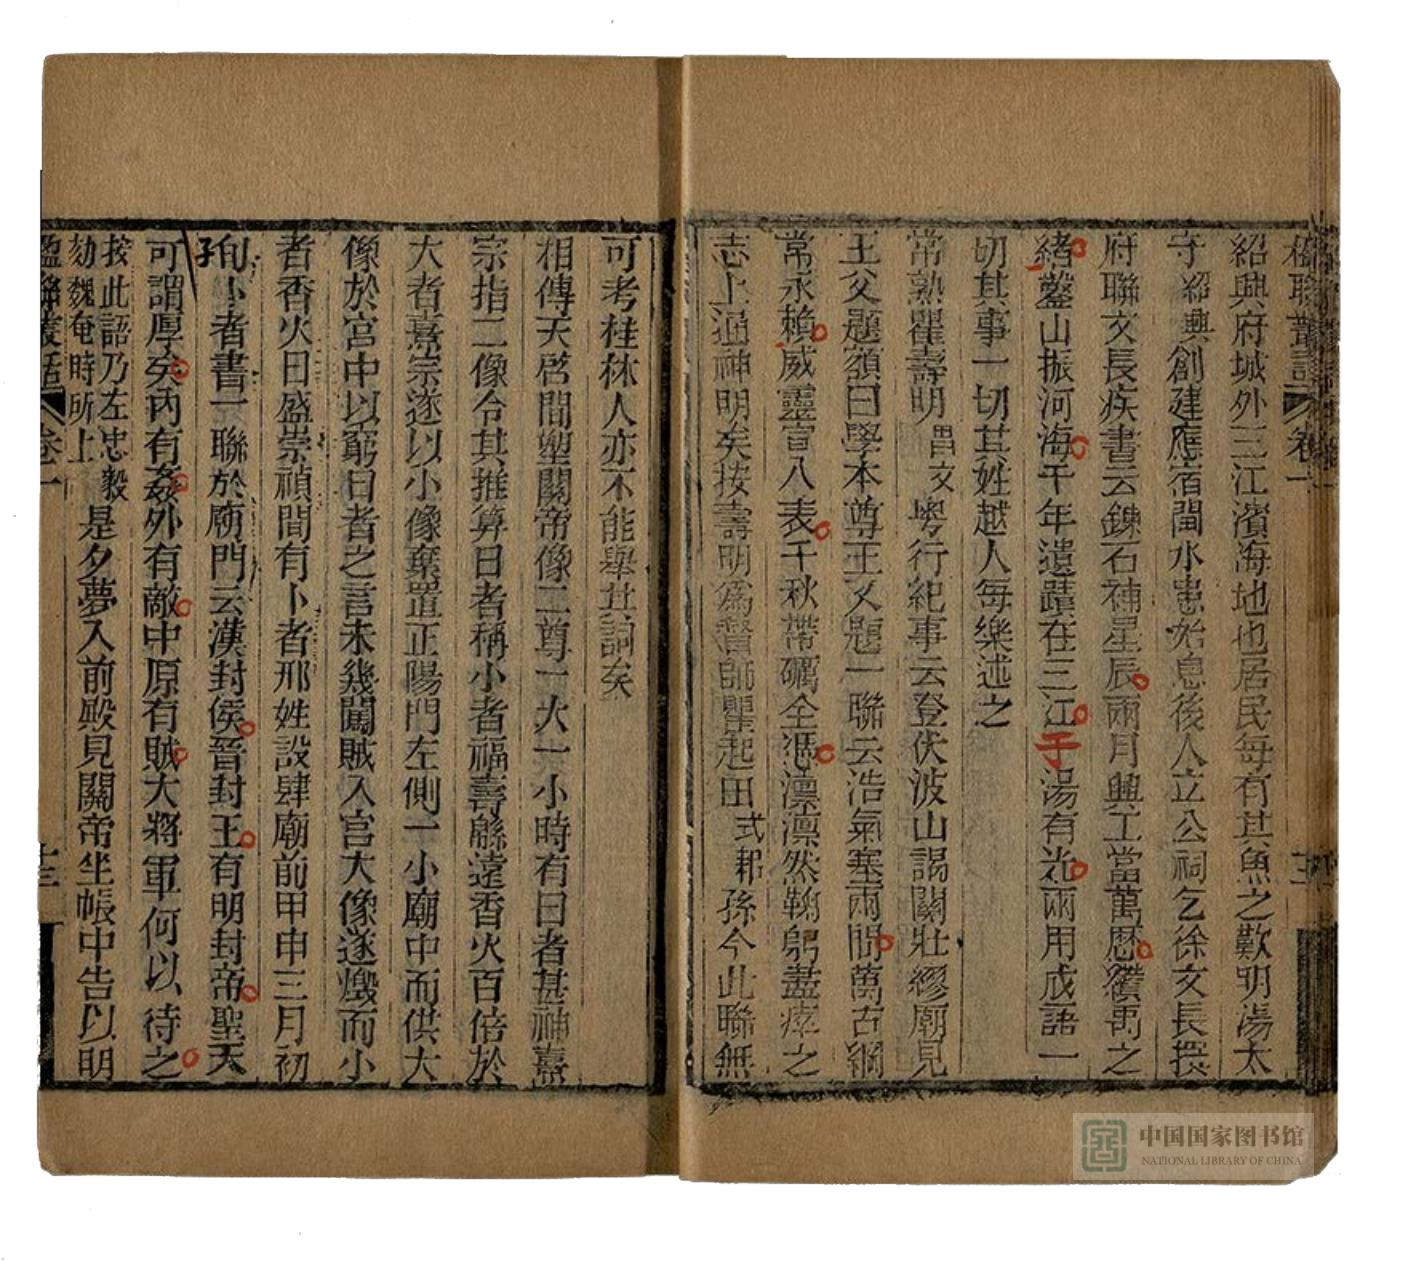 楹聯叢話 卷一
紹興府城外三江濱海地也居民每有其魚之歎明湯太
守紹興創建應宿閘水患始息後人立公祠乞徐文長撰
府聯文長疾書云鍊石補星辰兩月興工當萬歷纘禹之
緒鑿山振河海千年遺蹟在三江于湯有光兩用成語一
切其事一切其姓越人每樂述之
常熟瞿壽明昌文粵行紀事云登伏波山謁關壯繆廟見
王父題額曰學本尊王又題一聯云浩氣塞兩間萬古綱
常永賴威靈宣八表千秋帶礪全憑凛凛然鞠躬盡瘁之
志上通神明矣按壽明為督師瞿起田式耜孫今此聯無
可考桂林人亦不能舉其詞矣
相傳天啓間塑關帝像二尊一大一小時有日者甚神熹
宗指二像令其推算日者稱小者福壽緜遠香火百倍於
大者熹宗遂以小像棄置正陽門左側一小廟中而供大
像於宮中以窮日者之言未幾闖賊入宫大像遂燬而小
者香火日盛崇禎間有卜者邢姓設肆廟前甲申三月初
旬卜者書一聯於廟門云漢封侯晉封王有明封帝聖天
孔
可謂厚矣內有姦外有敵中原有賊大將軍何以待之
按此語乃左忠毅
劾魏奄時所上
是夕夢入前殿見關帝坐帳中告以明
楹聯叢話 卷一 十三
中国国家图书馆
NATIONAL LIBRARY OF CHINA